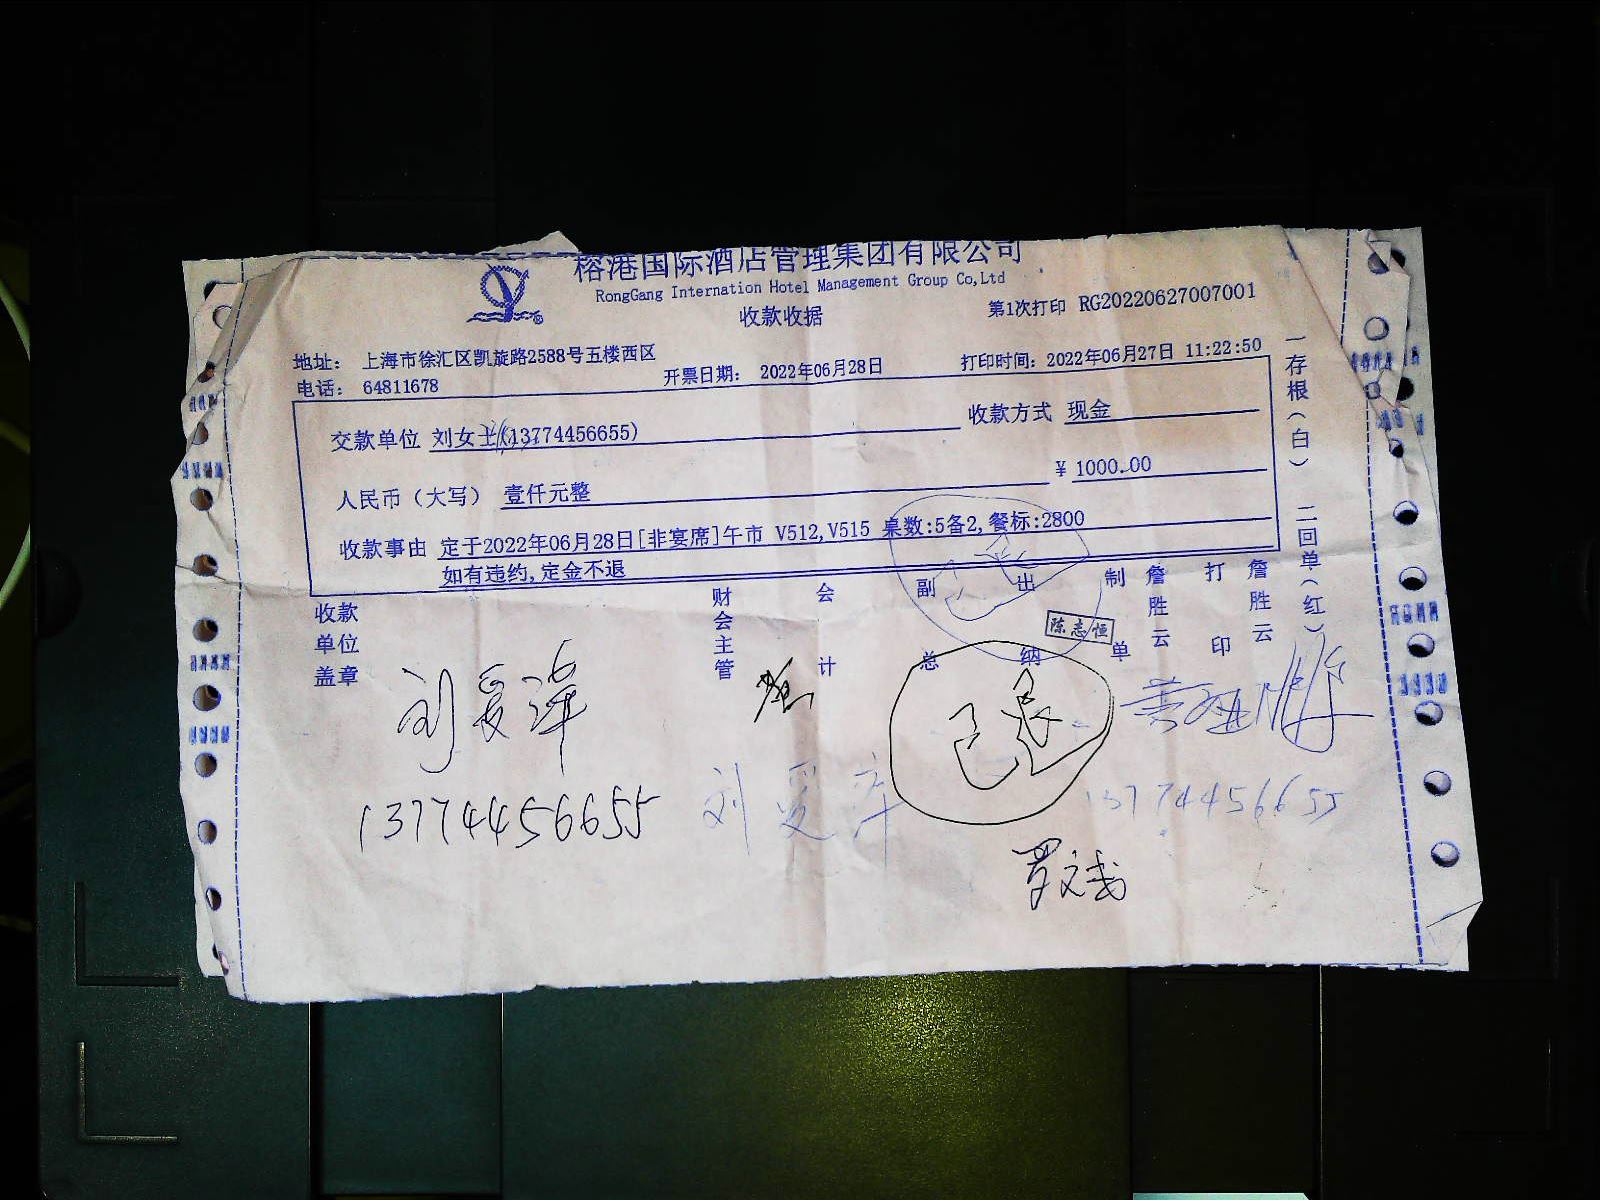 榕港国际酒店管理集团有限公司
RongGang Internation Hotel Management Group Co,Ltd
收款收据
第1次打印 RG20220627007001
地址： 上海市徐汇区凯旋路2588号五楼西区
电话： 64811678
开票日期： 2022年06月28日
打印时间：2022年06月27日 11:22:50
交款单位 刘女士(13774456655)
收款方式 现金
人民币（大写） 壹仟元整
¥ 1000.00
收款事由 定于2022年06月28日[非宴席]午市 V512,V515 桌数:5备2,餐标:2800
如有违约,定金不退
一存根（白） 二回单（红）
收款单位盖章
财会主管
会计
副总
出纳
陈志恒
制单
詹胜云
打印
詹胜云
刘爱萍
已退
13774456655
刘爱萍
13774456655
罗文武